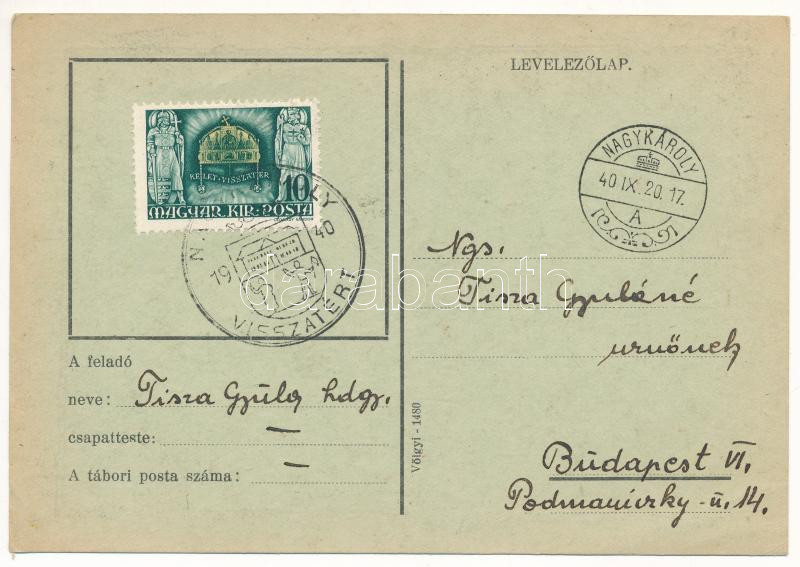 LEVELEZŐLAP.
KELET-VISSZATÉR
10f
MAGYAR KIR. POSTA
19 40
VISSZATÉRT
NAGYKÁROLY
40 IX. 20. 17.
A
darabanth
Ngs.
Tisza Gyuláné
urnőnek
Budapest VI.
Podmaniczky-u. 14.
A feladó
neve: Tisza Gyula hdgy.
csapatteste: —
A tábori posta száma: —
Völgyi - 1480